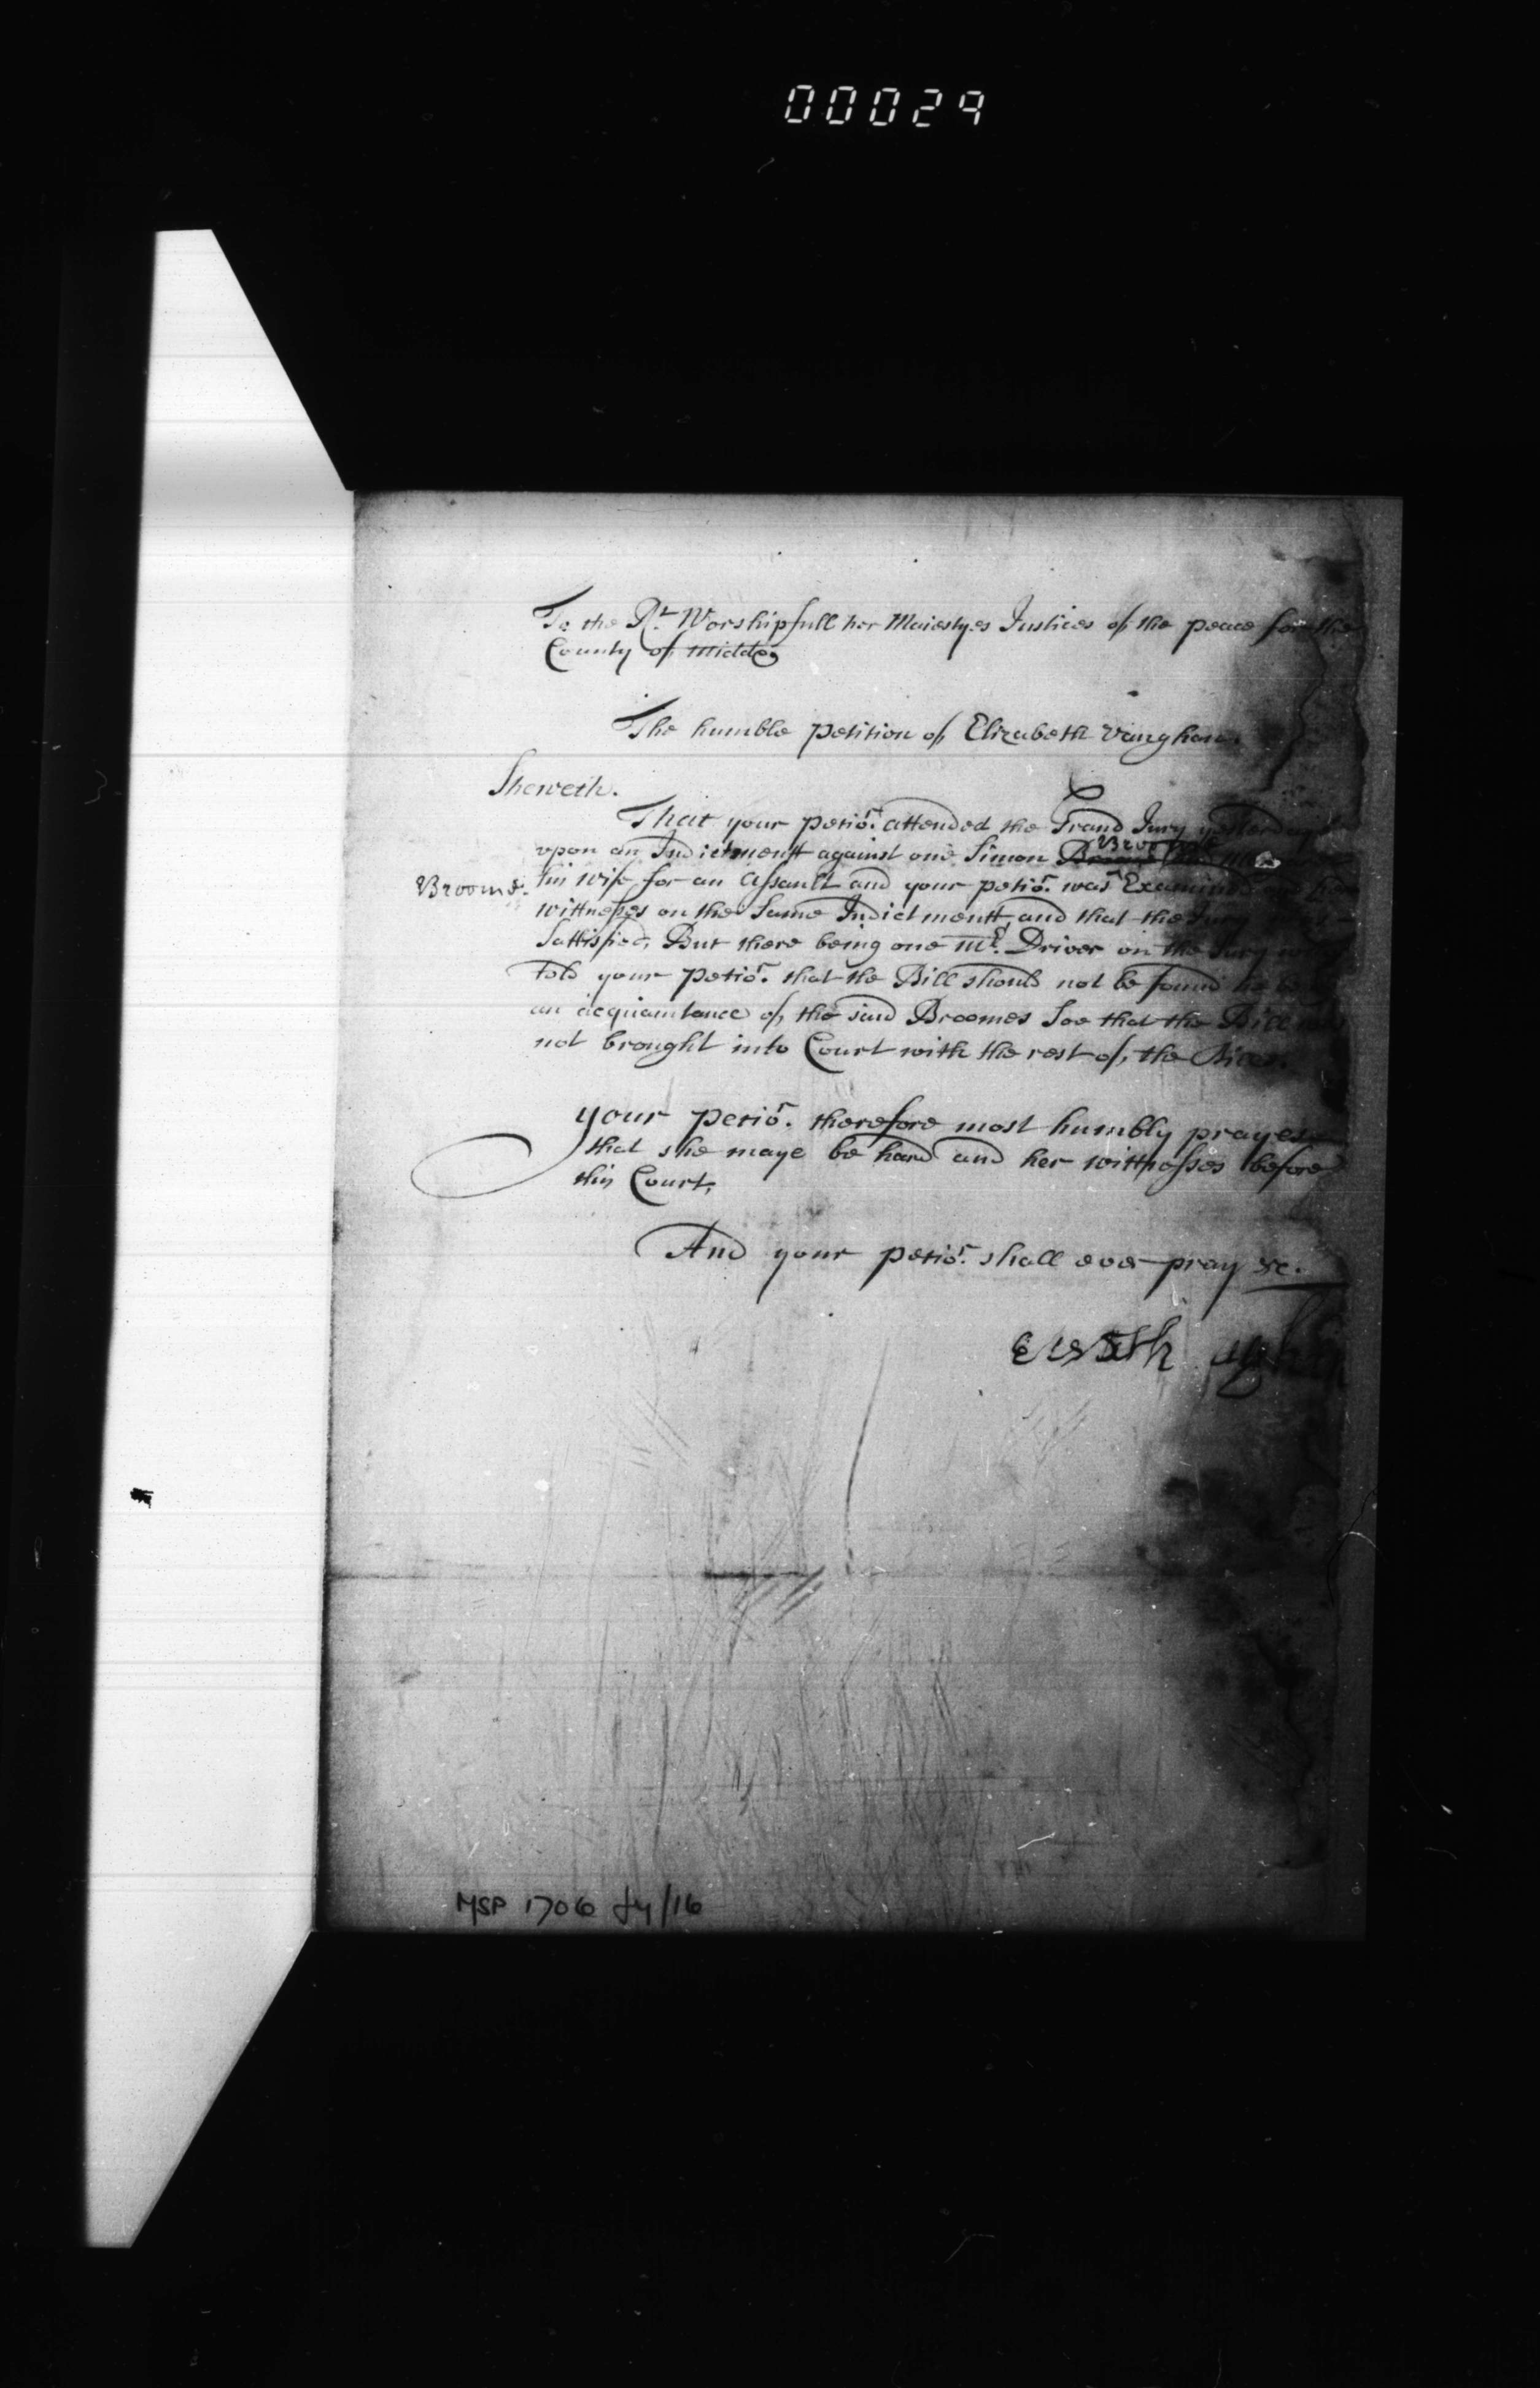 00029
To the Rt. Worshipfull her Maiestyes Justices of the peace for the
County of Middx
The humble Petition of Elizabeth Vaughan.
Sheweth.
That your Petior. attended the Grand Jury yesterday
vpon an Indictmentt against one Simon Broome
Broome
Broome. his wife for an Assault and your Petior. was Examined and her
wittnesses on the same Indictmentt, and that the Jury
Sattisfied, But there being one Mr. Driver on the Jury
Told your Petior. that the Bill should not be found he
an acquaintance of the said Broomes Soe that the Bill
not brought into Court with the rest of the Bills.
your Petior. therefore most humbly prayes
that she maye be hard and her wittnesses before
this Court,
And your Petior. shall ever pray &c.
MSP 1706 Jy/16